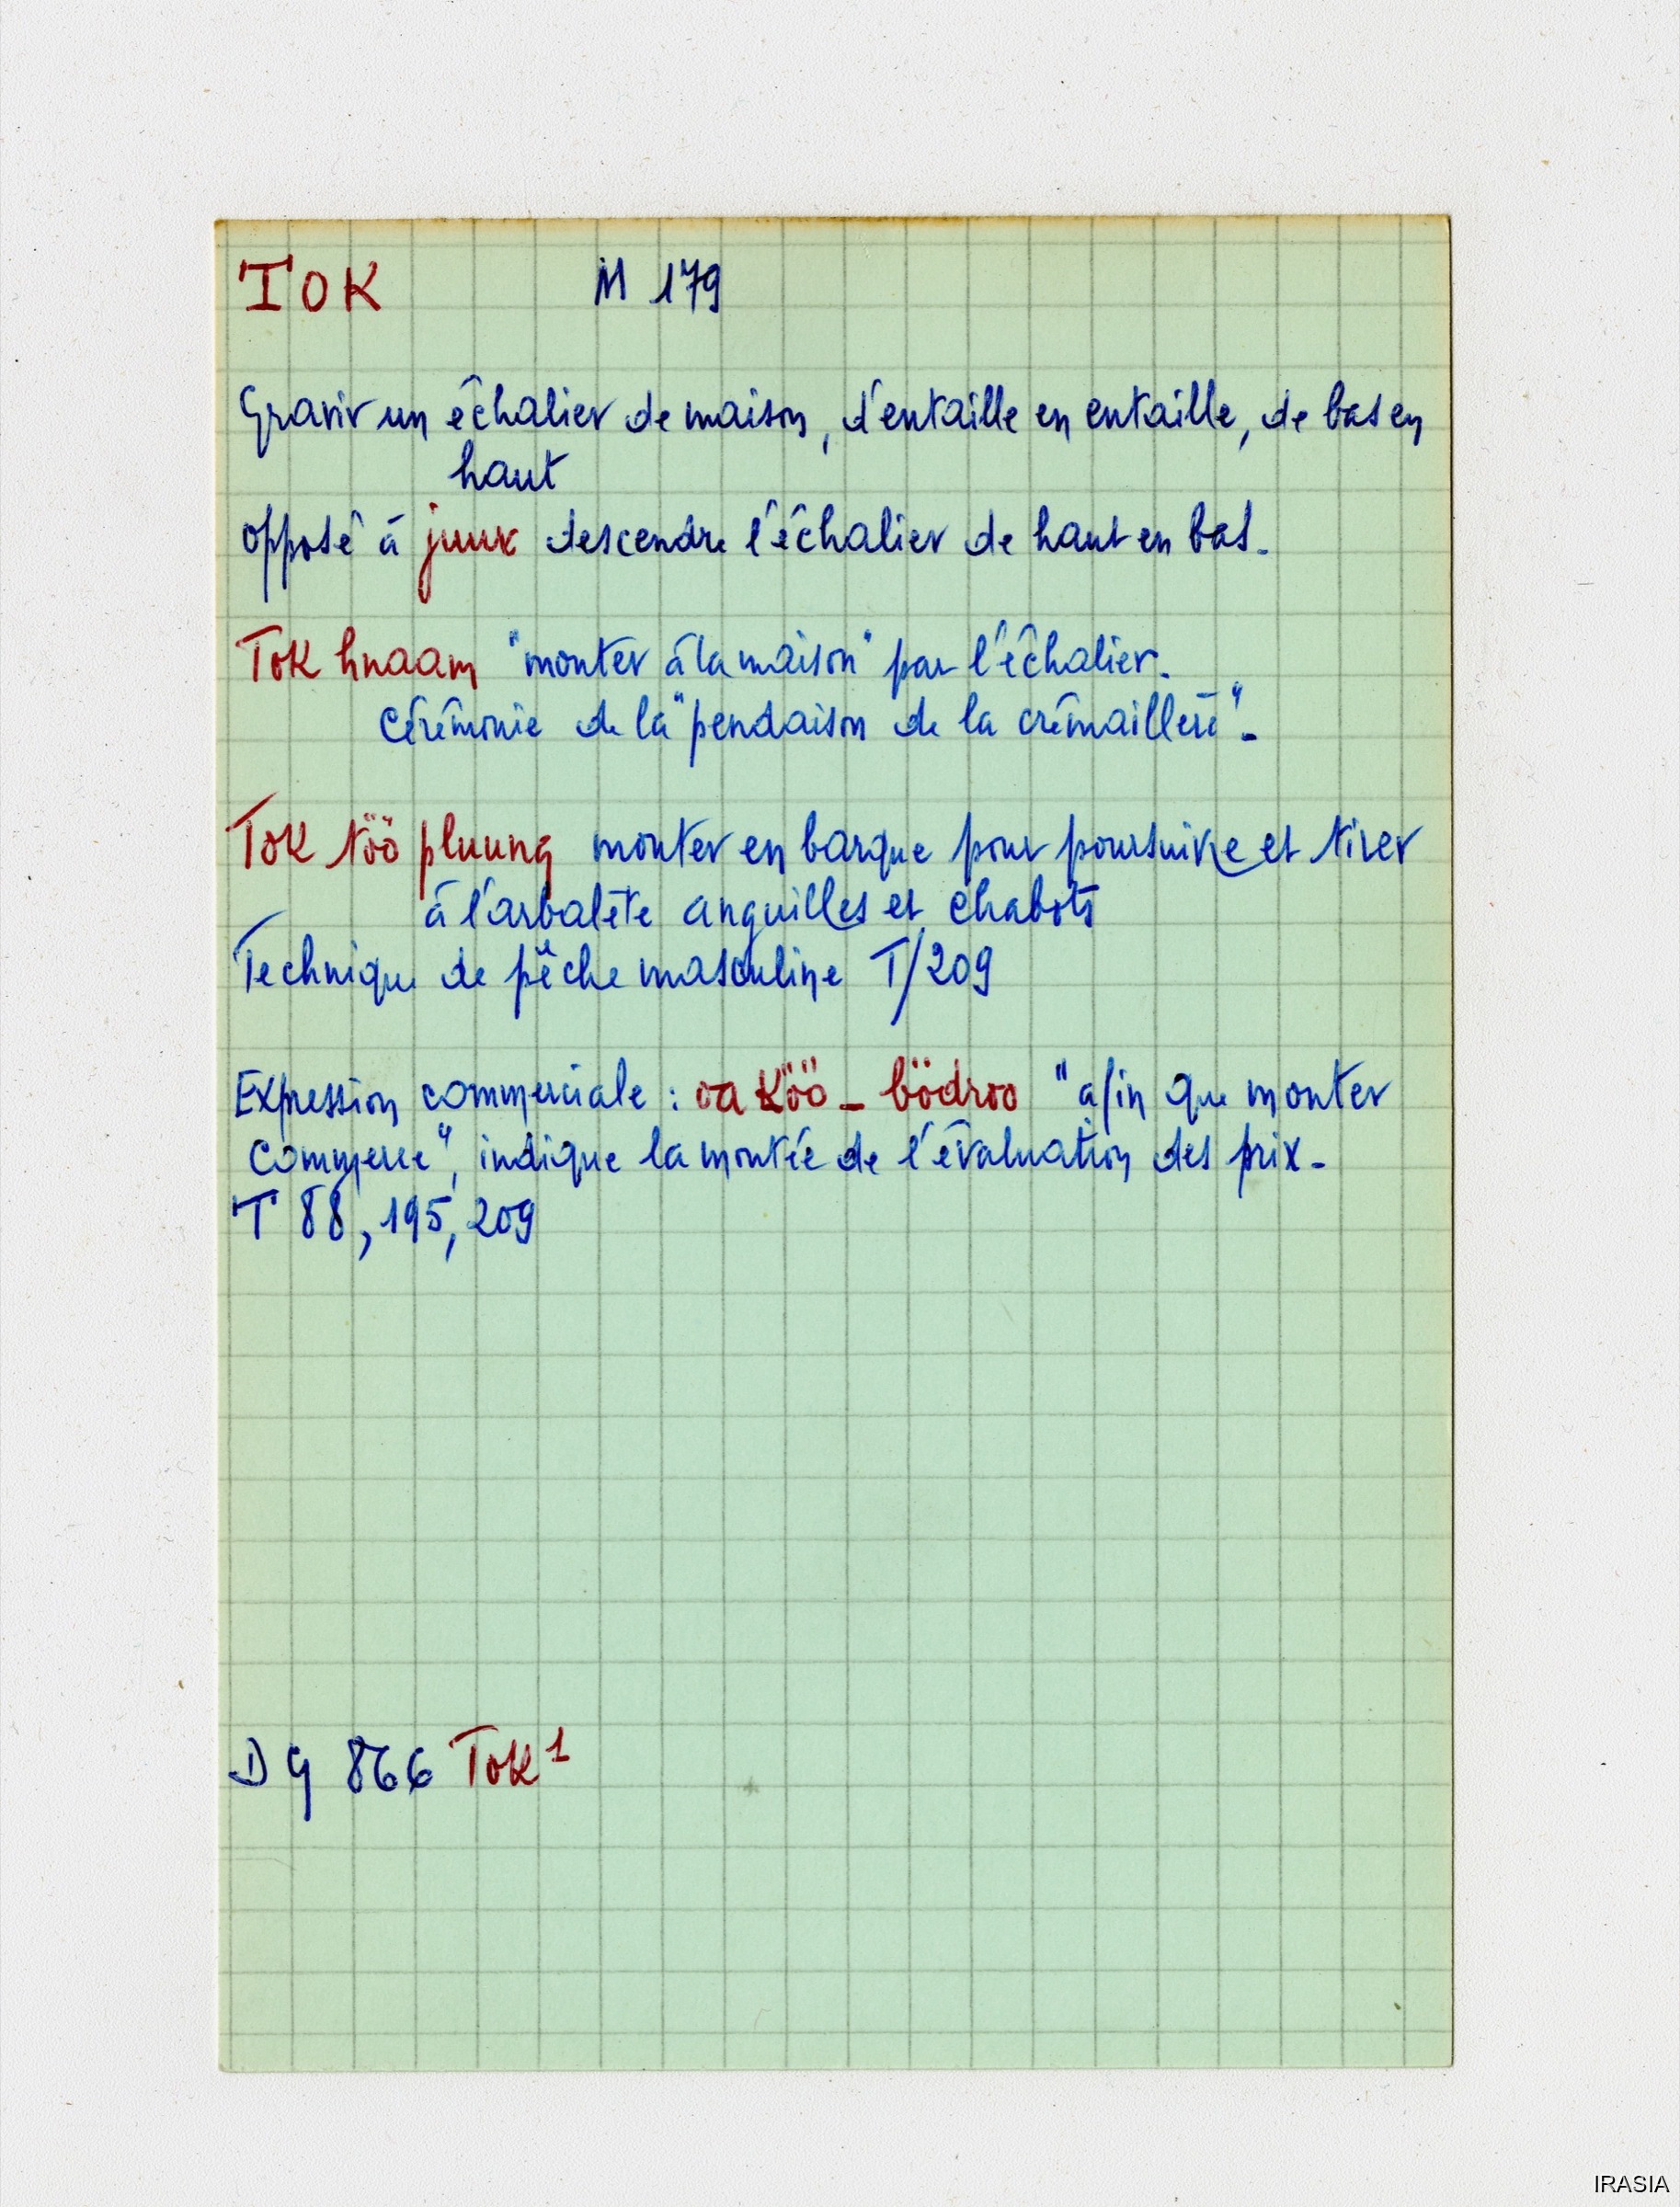 TOK M 179
Gravir un échalier de maison, d'entaille en entaille, de bas en
haut
opposé à juur descendre l'échalier de haut en bas.
Tok hnaam "monter à la maison" par l'échalier.
Cérémonie de la "pendaison de la crémaillère".
Tok töö pluung monter en barque pour poursuivre et tirer
à l'arbalète anguilles et chabots
Technique de pêche masculine T/209
Expression commerciale : oa Köö - bödroo "afin que monter
commerce", indique la montée de l'évaluation des prix.
T 88, 195, 209
DG 866 Tok¹
IRASIA